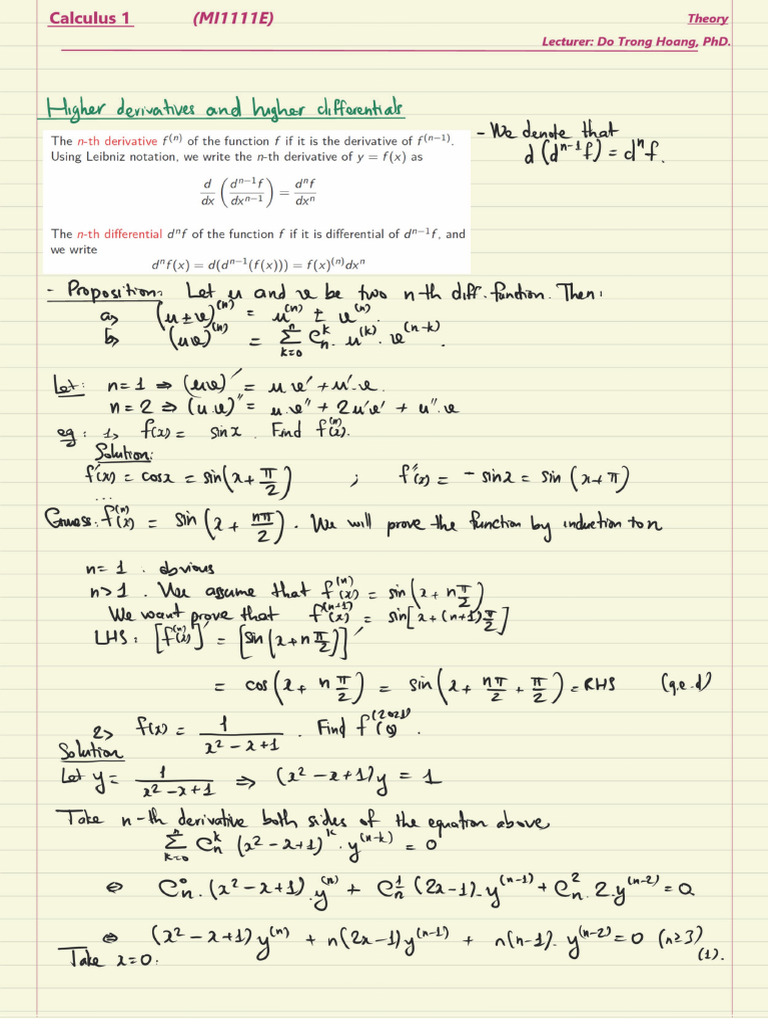 Calculus 1 (MI1111E) Theory
Lecturer: Do Trong Hoang, PhD.
Higher derivatives and higher differentials
The n-th derivative f⁽ⁿ⁾ of the function f if it is the derivative of f⁽ⁿ⁻¹⁾.
Using Leibniz notation, we write the n-th derivative of y = f(x) as
d/dx (dⁿ⁻¹f/dxⁿ⁻¹) = dⁿf/dxⁿ
The n-th differential dⁿf of the function f if it is differential of dⁿ⁻¹f, and
we write
dⁿf(x) = d(dⁿ⁻¹(f(x))) = f(x)⁽ⁿ⁾dxⁿ
- We denote that
d(dⁿ⁻¹f) = dⁿf.
- Proposition: Let u and v be two n-th diff. function. Then:
a, (u ± v)⁽ⁿ⁾ = u⁽ⁿ⁾ ± v⁽ⁿ⁾.
b, (uv)⁽ⁿ⁾ = Σ_{k=0}^{n} C_n^k . u^(k) . v^(n-k).
Let: n = 1 ⇒ (uv)' = uv' + u'.v.
n = 2 ⇒ (u.v)'' = u.v'' + 2u'v' + u''.v
eg: 1, f(x) = sin x. Find f⁽ⁿ⁾(x).
Solution:
f'(x) = cos x = sin(x + π/2) ; f''(x) = - sin x = sin (x + π)
...
Guess: f⁽ⁿ⁾(x) = sin (x + nπ/2). We will prove the function by induction to n
n = 1. obvious
n > 1. We assume that f⁽ⁿ⁾(x) = sin(x + n π/2)
We want prove that f⁽ⁿ⁺¹⁾(x) = sin[x + (n+1) π/2]
LHS: [f⁽ⁿ⁾(x)]' = [sin(x + n π/2)]'
= cos(x + n π/2) = sin(x + nπ/2 + π/2) = RHS (q.e.d)
2> f(x) = 1/(x² - x + 1). Find f⁽²⁰²¹⁾(0).
Solution
Let y = 1/(x² - x + 1) ⇒ (x² - x + 1)y = 1
Take n-th derivative both sides of the equation above
Σ_{k=0}^{n} C_n^k (x² - x + 1)^k . y^(n-k) = 0
⇔ C_n^0 . (x² - x + 1) . y^(n) + C_n^1 (2x - 1) . y^(n-1) + C_n^2 . 2 . y^(n-2) = 0.
⇔ (x² - x + 1) y^(n) + n(2x - 1) y^(n-1) + n(n-1) . y^(n-2) = 0 (n ≥ 3) (1).
Take x = 0: